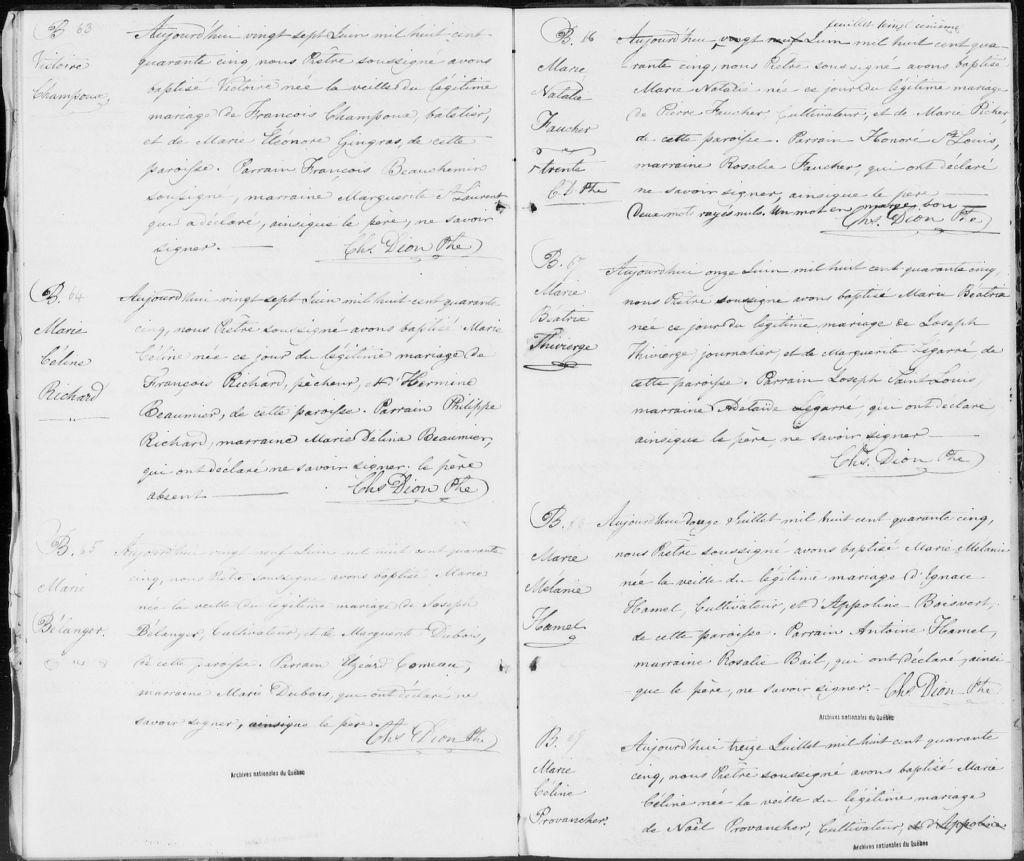 B. 63
Victoire
Champoux
Aujourd'hui vingt sept Juin mil huit cent
quarante cinq, nous Prêtre soussigné avons
baptisé Victoire née la veille du légitime
mariage de François Champoux, batelier,
et de Marie Eléonore Gingras, de cette
paroisse. Parrain François Beauchemin
soussigné, marraine Marguerite St Laurent
qui a déclaré, ainsique le père, ne savoir
signer.
Chs Dion Ptre
B. 64
Marie
Céline
Richard
Aujourd'hui vingt sept Juin mil huit cent quarante
cinq, nous Prêtre soussigné avons baptisé Marie
Céline née ce jour du légitime mariage de
François Richard, pêcheur, et d'Hermine
Beaumier, de cette paroisse. Parrain Philippe
Richard, marraine Marie Délina Beaumier,
qui ont déclaré ne savoir signer. le père
absent
Chs Dion Ptre
B. 65
Marie
Bélanger.
Aujourd'hui vingt neuf Juin mil huit cent quarante
cinq, nous Prêtre soussigné avons baptisé Marie
née la veille du légitime mariage de Joseph
Bélanger, Cultivateur, et de Marguerite Dubois,
de cette paroisse. Parrain Elzéard Comeau,
marraine Marie Dubois, qui ont déclaré ne
savoir signer, ainsique le père.
Chs Dion Ptre
Archives nationales du Québec
feuillet vingt
B. 16
Marie
Natalie
Faucher
trente
C D Ptre
Aujourd'hui vingt neuf Juin mil huit cent qua-
-rante cinq, nous Prêtre soussigné avons baptisé
Marie Natalie née ce jour du légitime mariage
de Pierre Faucher Cultivateur, et de Marie Picher
de cette paroisse. Parrain Honoré St Louis,
marraine Rosalie Faucher, qui ont déclaré
ne savoir signer, ainsique le père
Deux mots rayés nuls. Un mot en marge bon
Chs. Dion Ptre
B. 67
Marie
Béatrie
Thivierge
Aujourd'hui onze Juin mil huit cent quarante cinq,
nous Prêtre soussigné avons baptisé Marie Béatrie
née ce jour du légitime mariage de Joseph
Thivierge journalier, et de Marguerite Légarré de
cette paroisse. Parrain Joseph Saint Louis,
marraine Adelaïde Légarré qui ont déclaré
ainsique le père, ne savoir signer
Chs. Dion Ptre
B. 68
Marie
Mélanie
Hamel
Aujourd'hui douze Juillet mil huit cent quarante cinq,
nous Prêtre soussigné avons baptisé Marie Mélanie
née la veille du légitime mariage d'Ignace
Hamel, Cultivateur, et d'Appoline Boisvert,
de cette paroisse. Parrain Antoine Hamel,
marraine Rosalie Bail, qui ont déclaré, ainsi-
-que le père, ne savoir signer. Chs Dion Ptre
Archives nationales du Québec
B. 69
Marie
Céline
Provancher.
Aujourd'hui treize Juillet mil huit cent quarante
cinq, nous Prêtre soussigné avons baptisé Marie
Céline née la veille du légitime mariage
de Noël Provancher, Cultivateur, et d'Appoline
Archives nationales du Québec